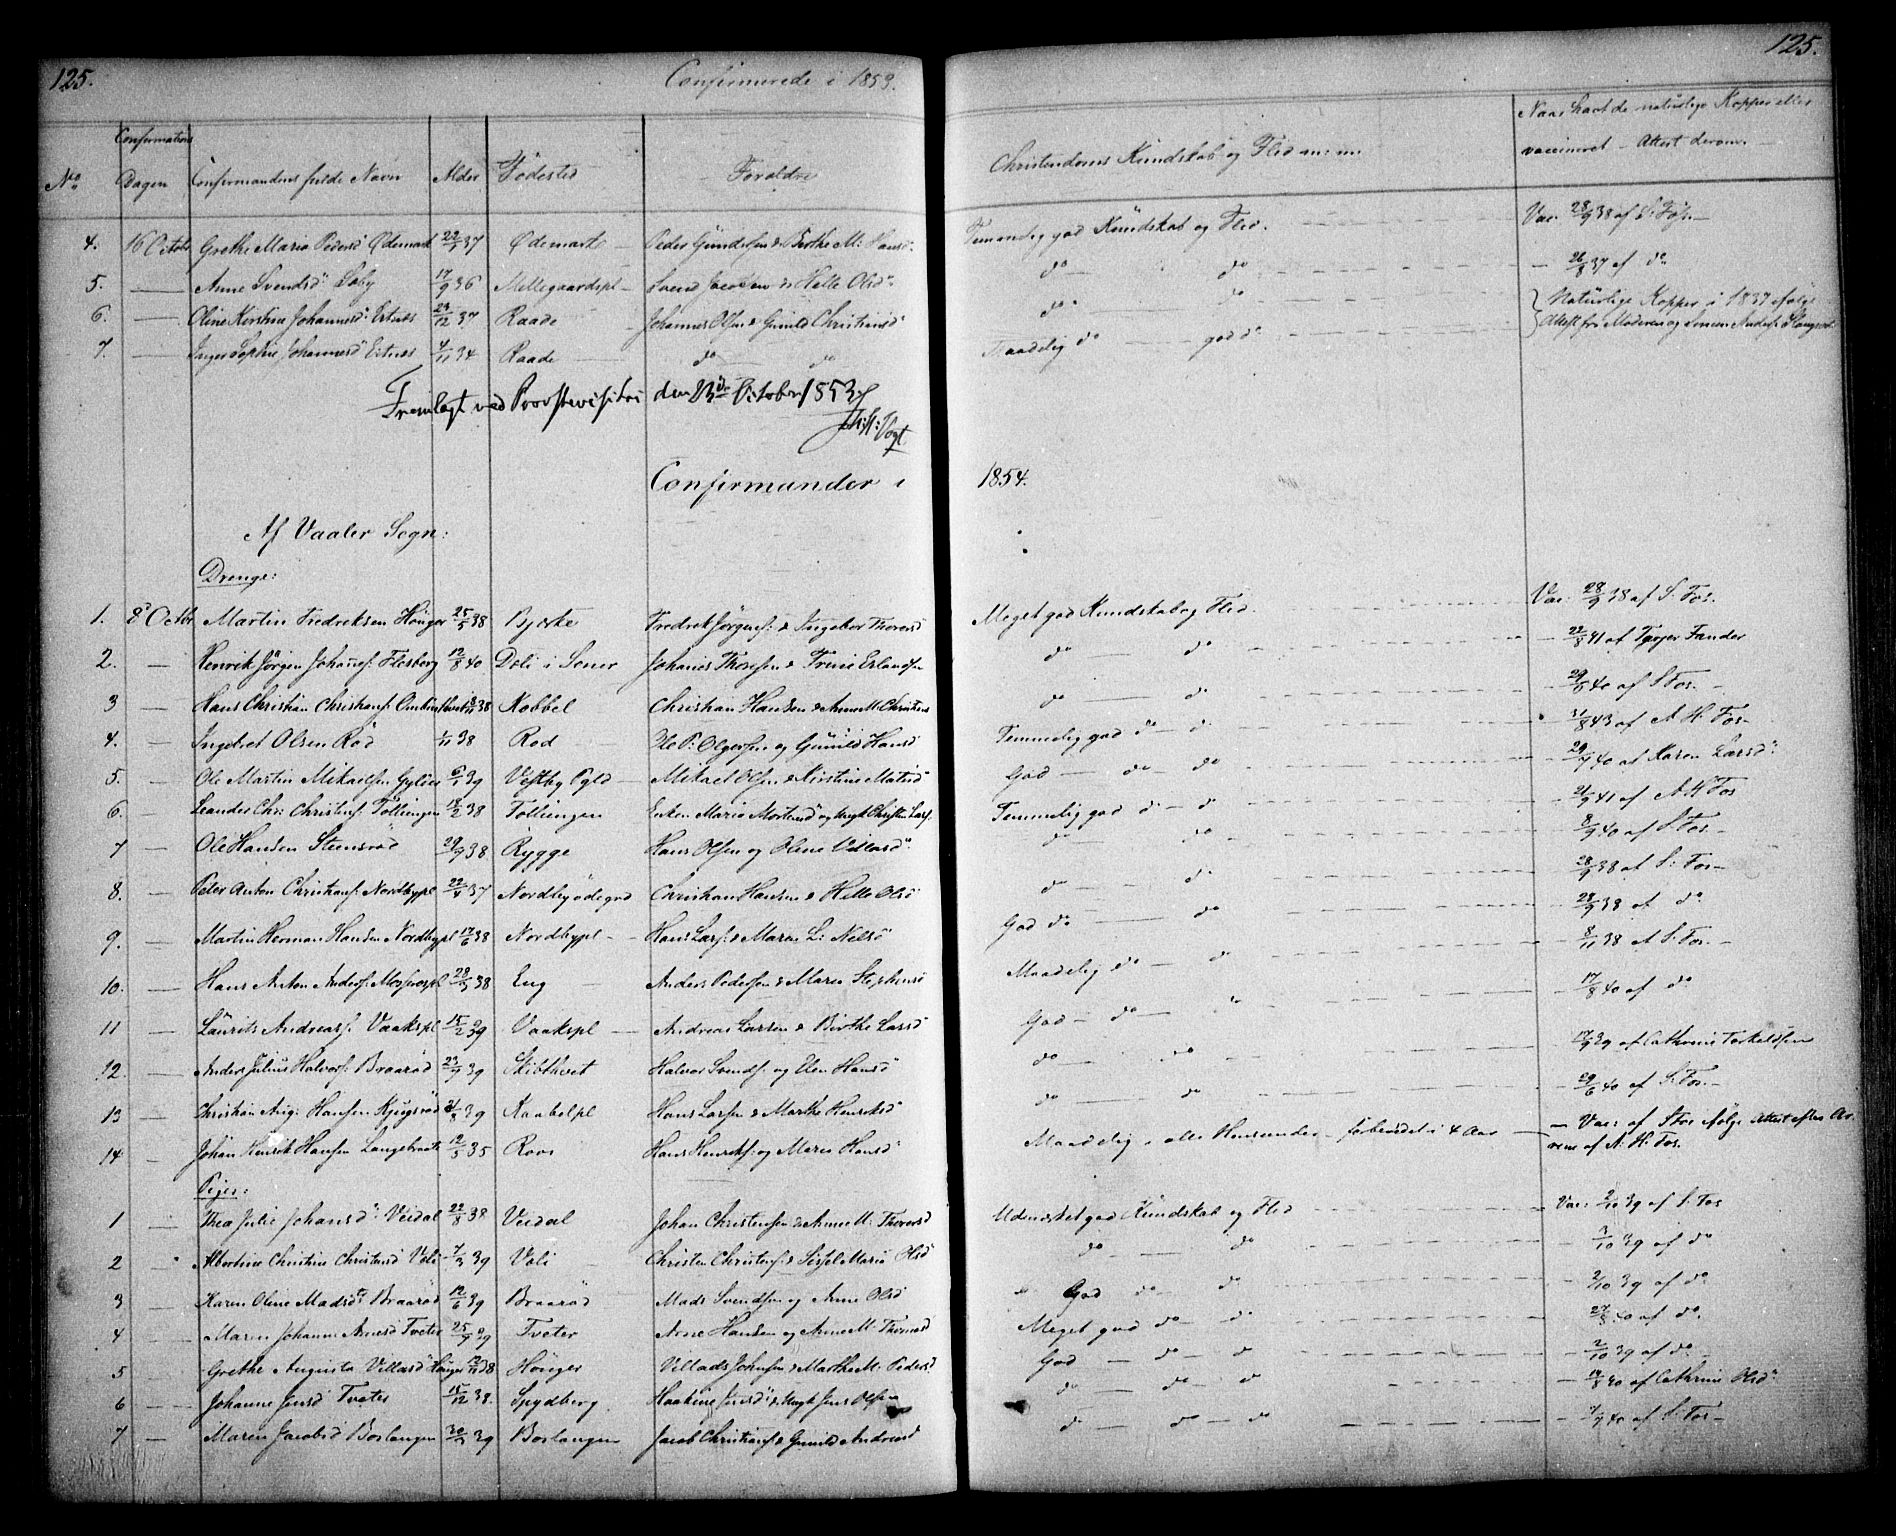 125. Confirmerede i 1853. 125.
No Confirmations Dagen Confirmandens fulde Navn Alder Fødested Forældre Christendoms Kundskab og Flid m: m: Naar havt de naturlige Kopper eller vaccineret - Attest derom.
4. 16 Octobr Grethe Maria Pedersd Ødemark 22/1 37 Ødemark Peder Gundersen & Berthe M: Hansd: Temmelig god Kundskab og Flid. Vac: 28/9 38 af S: Fos.
5. — Anne Svendsd Soby 17/9 36 Mellegaardspl Svend Jacobsen & Helle Olsd do — do - 26/8 37 af do
6. — Oline Kirstine Johannesd: 24/12 37 Raade Johannes Olsen & Gunild Christiansd do — do Naturlige Kopper i 1837 ifølge Attest fra Moderen og
7. — Inger Sophie Johannesd 4/11 34 Raade do do Maadelig do — god do
Fremlagt ved Provstevisitats den 23de October 1853
Vogt
Confirmander i 1854.
Af Vaaler Sogn:
Drenge:
1. 8 Octbr Martin Fredriksen Hønger 25/5 38 Bjerke Fredrik Jørgens: & Ingebor Thorersd Meget god Kundskab og Flid. Vac: 28/9 38 af S. Fos.
2. — Henrik Jørgen Johans: Flesberg 12/8 40 Doli i Soner Johanes Thoresen & Trine Erlandsen do — do - 22/8 41 af Tarjer Fander
3 — Hans Christian Christians: 38 Kobbel Christian Hansen & Anne M: Christens do — do - 29/5 40 af S Fos.
4. — Ingebret Olsen Rød 1/11 38 Rød Ole P: Olgersen og Gunild Hansd Temmelig god do — do - 31/8 43 af A. H. Fos
5. — Ole Martin Mikaelsen 6/1 39 Vestby Pgld Mikael Olsen & Kirstine Matisd God — do do - 29/7 40 af Karen Larsd
6. — Leander Chr: Christens: Tollingen 18/2 38 Tollingen Enken Maria Mortensd og ungk Christen Lars: Temmelig god do — do - 21/9 41 af A H Fos
7 — Ole Hansen Steensrød 29/9 38 Rygge Hans Olsen og Oline Villasd do do - 8/9 40 af S. Fos
8. — Peter Anton Christians: Nordbypl 22/4 37 Nordbyødegrd Christian Hansen & Helle Olsd do — do - 28/9 38 af S: Fos
9. — Martin Herman Hansen Nordbypl 17/6 38 Nordbypl Hans Lars: & Maren L: Nelsd God do — do - 28/9 38 af do
10. — Hans Anton Anders: Mosserspl 28/3 38 Eng Anders Pedersen & Maren Stephensd Maadelig do — do - 8/11 38 af S. Fos.
11 — Laurits Andreass: Vaakspl 15/2 39 Vaakspl Andreas Larsen & Birthe Larsd God — do " - 17/8 40 af do
12. — Anders Julius Halvors: Braarød 23/9 39 Skibthvet Halvor Svends: og Elen Hansd do do - 17/9 39 af Cathrine Torkeldsen
13 — Christian Aug: Hansen 39 Kaabelpl Hans Larsen & Marthe Henriksd do — do - 29/6 40 af S: Fos.
14 — Johan Henrik Hansen Langebraate 12/5 35 Roos Hans Henriks: og Maren Hansd Maadelig i alle Henseender - forberedet i 4 Aar - Vac: af S Fos ifølge Attest efter Arvene af A. H. Fos.
Piger:
1 — Thea Julie Johansd: Veidal 22/8 38 Veidal Johan Christensen & Anne M: Thorersd Udmærket god Kundskab og Flid Vac: 2/10 39 af S. Fos
2 — Albertine Christine Christensd Voli 7/3 39 Voli Christen Christens: & Sissel Maria Olsd do — do 3/10 39 af do
3 — Karen Oline Madsd: Braarød 12/6 39 Braarød Mads Svendsen og Anne Olsd God do do - 2/10 39 af do
4 — Maren Johanne Arnesd Tveter 25/9 39 Tveter Arne Hansen og Anne M: Thomasd Meget god do — do - 27/8 40 af do.
5 — Grethe Augusta Villasd Hønger 12/11 38 Hønger Villads Johnsen & Marthe M: Pedersd God — do — do - 2/10 39 af do
6 — Johanne Jensd Tveter 15/12 38. Spydberg. Haakine Jensd & Ungk Jens Olsen do — do do - 19/8 40 af Cathrine Olsd
7 — Maren Jacobsd Boslangen 30/3 39 Boslangen Jacob Christians: & Gunild Andreasd do do — do - 7/7 40 af S: Fos